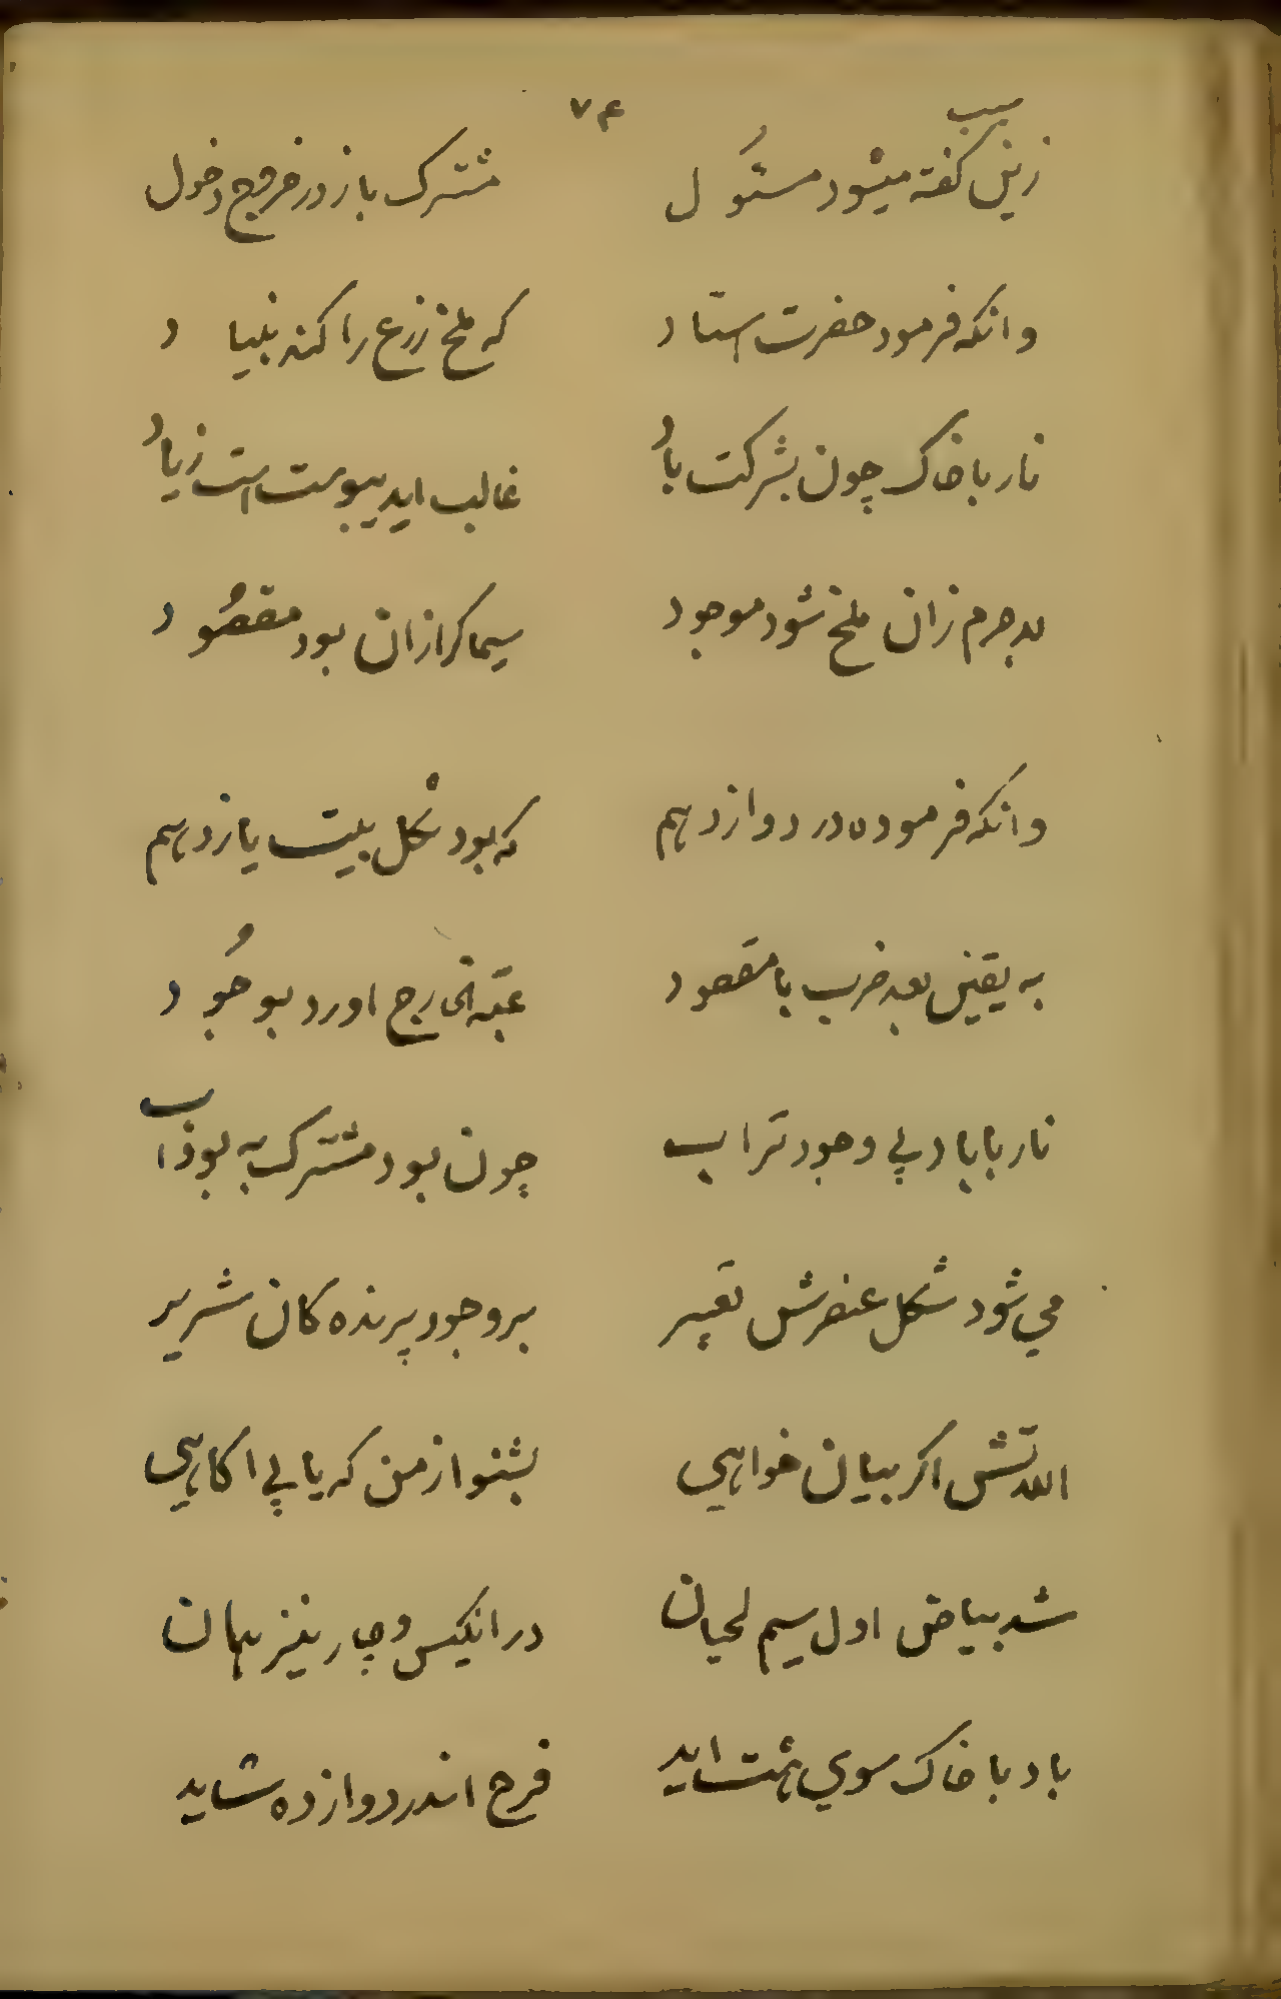 ۷۴
زین سبب گفته میشود مسئول مشترک باز در خروج دخول
وانکه فرمود حضرت استاد که ملخ زرع را کند بنیاد
نار با خاک چون بشرکت باد غالب اید یبوست است زیاد
لاجرم زان ملخ شود موجود سیما کر ازان بود مقصود
وانکه فرموده در دوازدهم که بود شکل بیت یازدهم
به یقین بعد ضرب با مقصود عتبه الخارج اورد بوجود
نار با باد پی وجود تراب چون بود مشترک به بوذاب
می شود شکل عنصرش تعبیر بر وجود پرنده کان شریر
اللتش اکر بیان خواهی بشنو از من که یابی اکاهی
شد بیاض اول سیم لحیان در انکیس و چار نیز همان
باد با خاک سوی هشت اید فرح اندر دوازده شاید